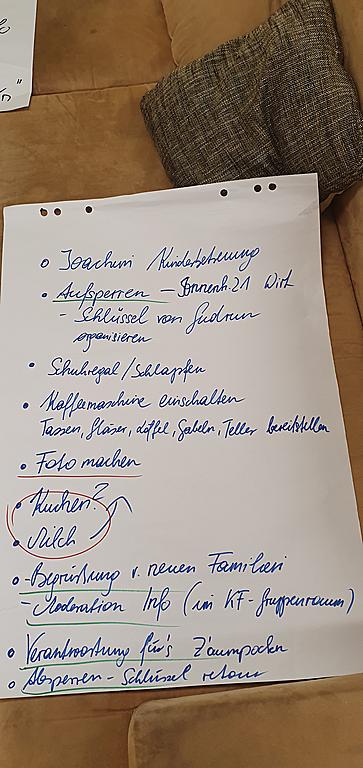 • Joachim Kinderbetreuung
• Aufsperren – Sonnenh. 21 Wirt
- Schlüssel von Gudrun
organisieren
• Schuhregal/Schlapfen
• Kaffeemaschine einschalten
Tassen, Gläser, Löffel, Gabeln, Teller bereitstellen
• Foto machen
• Kuchen?
• Milch
• - Begrüßung v. neuen Familien
- Moderation Info (im KF-Gruppenraum)
• Verantwortung für's Z'sammpacken
• Absperren – Schlüssel retour